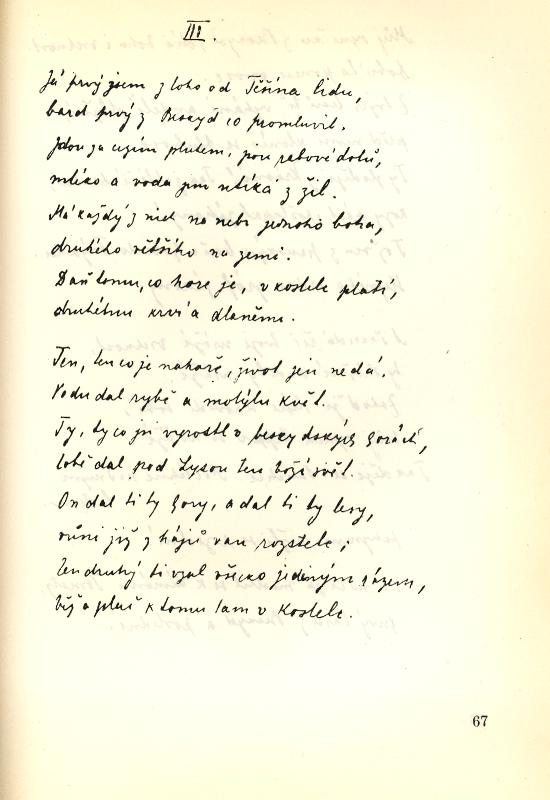 III.
Já prvý jsem z toho od Těšína lidu,
bard prvý z Beskyd co promluvil.
Jdou za cizím pluhem, jdou rabové dolů,
mléko a voda jim utíká z žil.
Má každý z nich na nebi jednoho boha,
druhého většího na zemi.
Daň tomu, co hoře je, v kostele platí,
druhému krví a dlaněmi.
Ten, ten co je nahoře, život jen nedá.
Vodu dal rybě a motýlu květ.
Ty, ty co jsi vyrostl v beskydských horách,
tobě dal pod Lysou ten boží svět.
On dal ti ty hory, a dal ti ty lesy,
vůni již z hájů van rozstele;
ten druhý ti vzal všecko jediným rázem,
běž a plač k tomu tam v kostele.
67